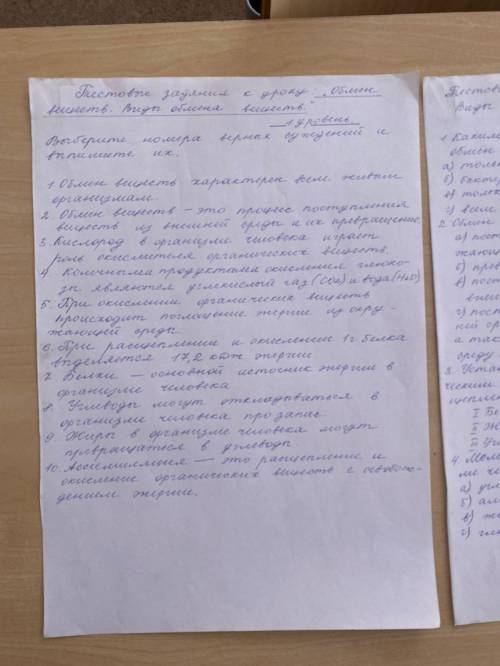 Тестовые задания к уроку: „Обмен
веществ. Виды обмена веществ."
1 уровень
Выберите номера верных суждений и
выпишите их.
1. Обмен веществ характерен всем живым
организмам.
2. Обмен веществ – это процесс поступления
веществ из внешней среды и их превращение
3. Кислород в организме человека играет
роль окислителя органических веществ.
4. Конечными продуктами окисления глюко-
зы являются углекислый газ (CO₂) и вода (H₂O)
5. При окислении органических веществ
происходит поглощение энергии из окру-
жающей среды
6. При расщеплении и окислении 1 г белка
выделяется 17,2 кДж энергии
7. Белки – основной источник энергии в
организме человека
8. Углеводы могут откладываться в
организме человека про запас
9. Жиры в организме человека могут
превращаться в углеводы.
10. Ассимиляция – это расщепление и
окисление органических веществ с освобож-
дением энергии.
Тестовы
Виды
1 Каким
обмен
а) тольк
б) бактер
в) тольк
г) всем
2 Обмен
а) пост
жающе
б) прев
в) пост
вни
г) пост
ней ср
а так
среду
3 Устан
ческим
щеплен
I Бе
II Жи
III Угл
4 Моле
ме че
а) угл
б) ам
в) жи
г) глю